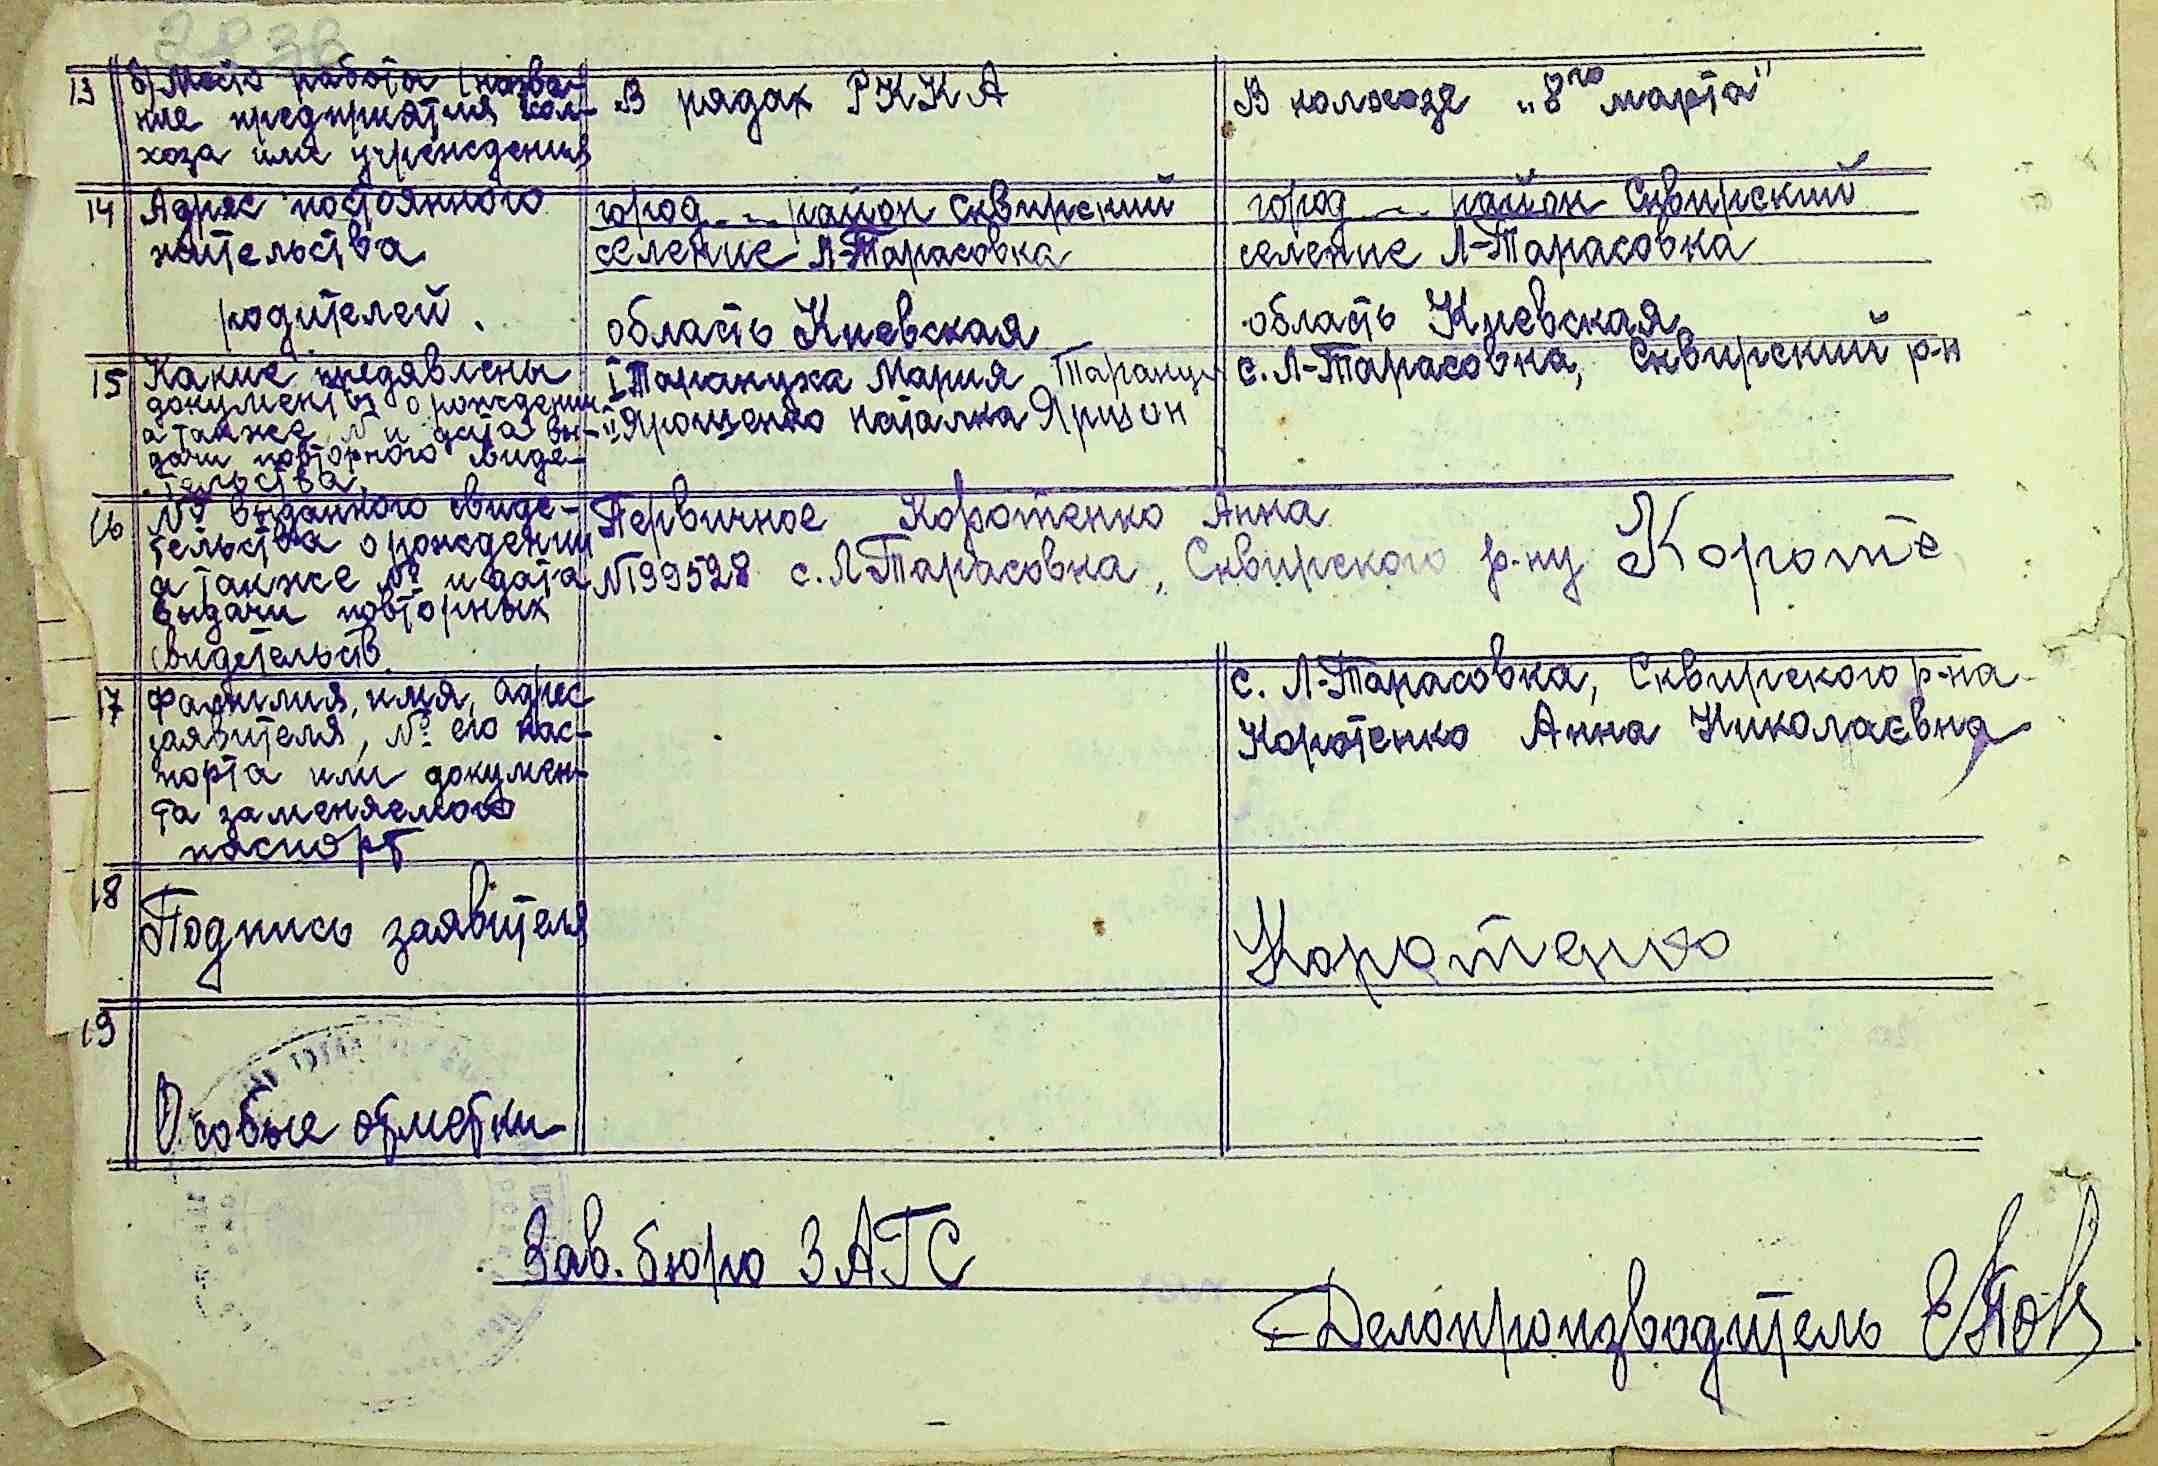 13 б) Место работы (назва-
ние предприятия кол-
хоза или учреждения
В рядах РККА
В колхозе „8го марта"
14 Адрес постоянного
жительства
родителей.
город -- район Сквирский
селение Л-Тарасовка
область Киевская
город -- район Сквирский
селение Л-Тарасовка
область Киевская
15 Какие предявлены
документы о рождении
а также № и дата вы-
дачи повторного свиде-
тельства.
I Тарануха Мария Таранух
II Ярошенко Наталка Ярошен
с. Л-Тарасовка, Сквирский р-н
16 № выданного свиде-
тельства о рождении
а также № и дата
выдачи повторных
свидетельств.
Первичное Коротенко Анна
№199528 с. Л Тарасовка, Сквирского р-ну Короте
17 Фамилия, имя, адрес
заявителя, № его пас-
порта или докумен-
та заменяемого
паспорт
с. Л-Тарасовка, Сквирского р-на
Коротенко Анна Николаєвна
18 Подпись заявителя
Коротенко
19
Особые отметки
Зав. бюро ЗАГС
Делопроизводитель